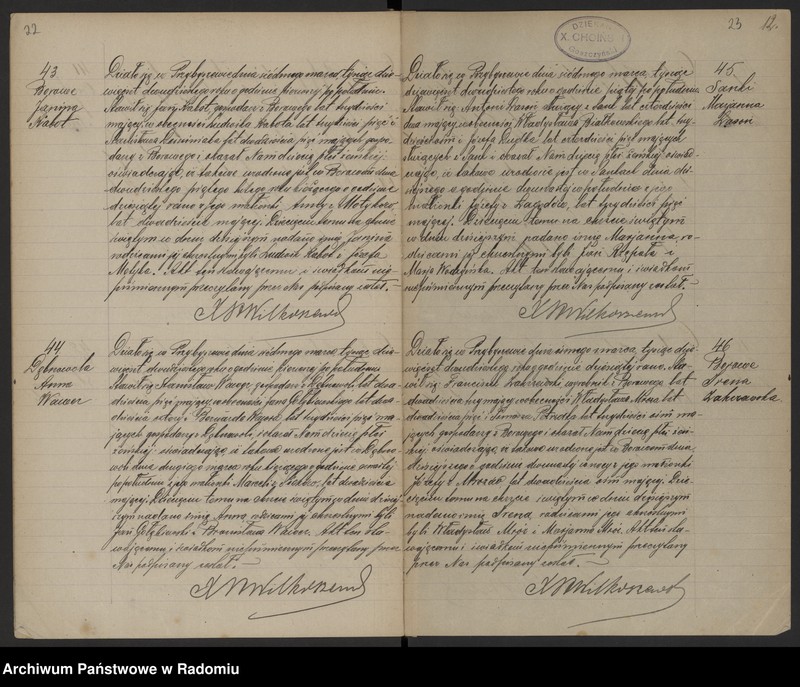 22
43
Borowe
Janina
Kabot
Działo się w Przybyszewie dnia siódmego marca tysiąc dzie-
więćset dwudziestego roku o godzinie pierwszej po południu.
Stawił się Jan Kabot, gospodarz z Borowego lat trzydzieści
mający, w obecności Ludwika Kabota lat trzydzieści pięć i
lat dwadzieścia pięć mających gospo-
darzy z Borowego i okazał Nam dziecię płci żeńskiej
oświadczając, iż takowe urodzone jest w Borowem dnia
dwudziestego piątego lutego roku bieżącego o godzinie
dziesiątej rano z jego małżonki Anny z
lat dwadzieścia mającej. Dziecięciu temu na chrzcie
świętym w dniu dzisiejszym nadano imię Janina
rodzicami jej chrzestnymi byli Ludwik Kabot i Józefa
Akt ten oświadczającemu i świadkom nie-
piśmiennym przeczytany przez Nas podpisany został.
X Wilkoszewski
44
Dąbrowola
Anna
Działo się w Przybyszewie dnia siódmego marca, tysiąc dzie-
więćset dwudziestego roku o godzinie pierwszej po południu
Stawił się Stanisław gospodarz z Dąbrowoli lat dwa-
dzieścia pięć mający, w obecności Jana Gołębiowskiego lat dwa-
dzieścia cztery i Bernarda lat trzydzieści pięć ma-
jących gospodarzy z Dąbrowoli, i okazał Nam dziecię płci
żeńskiej oświadczając, iż takowe urodzone jest w Dąbro-
woli dnia drugiego marca roku bieżącego o godzinie czwartej
po południu z jego małżonki Marceli z lat dwadzieścia
mającej. Dziecięciu temu na chrzcie świętym w dniu dzisiej-
szym nadano imię Anna rodzicami jej chrzestnymi byli
Jan Gołębiowski i Bronisława Akt ten oświad-
czającemu i świadkom niepiśmiennym przeczytany przez
Nas podpisany został.
X Wilkoszewski
DZIEKAN
X. CHOIŃSKI
23 12.
45.
Sanki
Marjanna
Działo się w Przybyszewie dnia siódmego marca, tysiąc
dziewięćset dwudziestego roku o godzinie piątej po południu.
Stawił się Antoni służący z Sank lat czterdzieści
dwa mający, w obecności Władysława Białkowskiego lat trzy-
dzieści i Józefa lat czterdzieści pięć mających
służących z Sank i okazał Nam dziecię płci żeńskiej oświad-
czając, iż takowe urodzone jest w Sankach dnia dzi-
siejszego o godzinie dwunastej w południe z jego
małżonki Józefy z lat trzydzieści pięć
mającej. Dziecięciu temu na chrzcie świętym
w dniu dzisiejszym nadano imię Marjanna, ro-
dzicami jej chrzestnymi byli Jan i
Marja Akt ten oświadczającemu i świadkom
niepiśmiennym przeczytany przez Nas podpisany został.
X Wilkoszewski
46
Borowe
Irena
Zakrzewska
Działo się w Przybyszewie dnia ósmego marca, tysiąc dzie-
więćset dwudziestego roku o godzinie dziesiątej rano. Sta-
wił się Franciszek Zakrzewski, wyrobnik z Borowego lat
dwadzieścia trzy mający, w obecności Władysława lat
dwadzieścia pięć i lat trzydzieści osiem ma-
jących gospodarzy z Borowego i okazał Nam dziecię płci żeń-
skiej, oświadczając, iż takowe urodzone jest w Borowem dnia
dzisiejszego o godzinie z jego małżonki
Józefy z lat dwadzieścia osiem mającej. Dzie-
cięciu temu na chrzcie świętym w dniu dzisiejszym
nadano imię Irena, rodzicami jej chrzestnymi
byli Władysław i Marjanna Akt ten oświad-
czającemu i świadkom niepiśmiennym przeczytany
przez Nas podpisany został.
X Wilkoszewski
Archiwum Państwowe w Radomiu